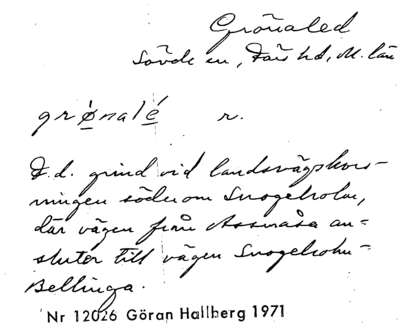 Grönaled
Sövde sn, Färs hd, M. län
grø̱nalé̱ r.
F.d. grind vid landsvägskors-
ningen söder om Snogeholm,
där vägen från Assmåsa an-
sluter till vägen Snogeholm-
Bellinga.
Nr 12026 Göran Hallberg 1971